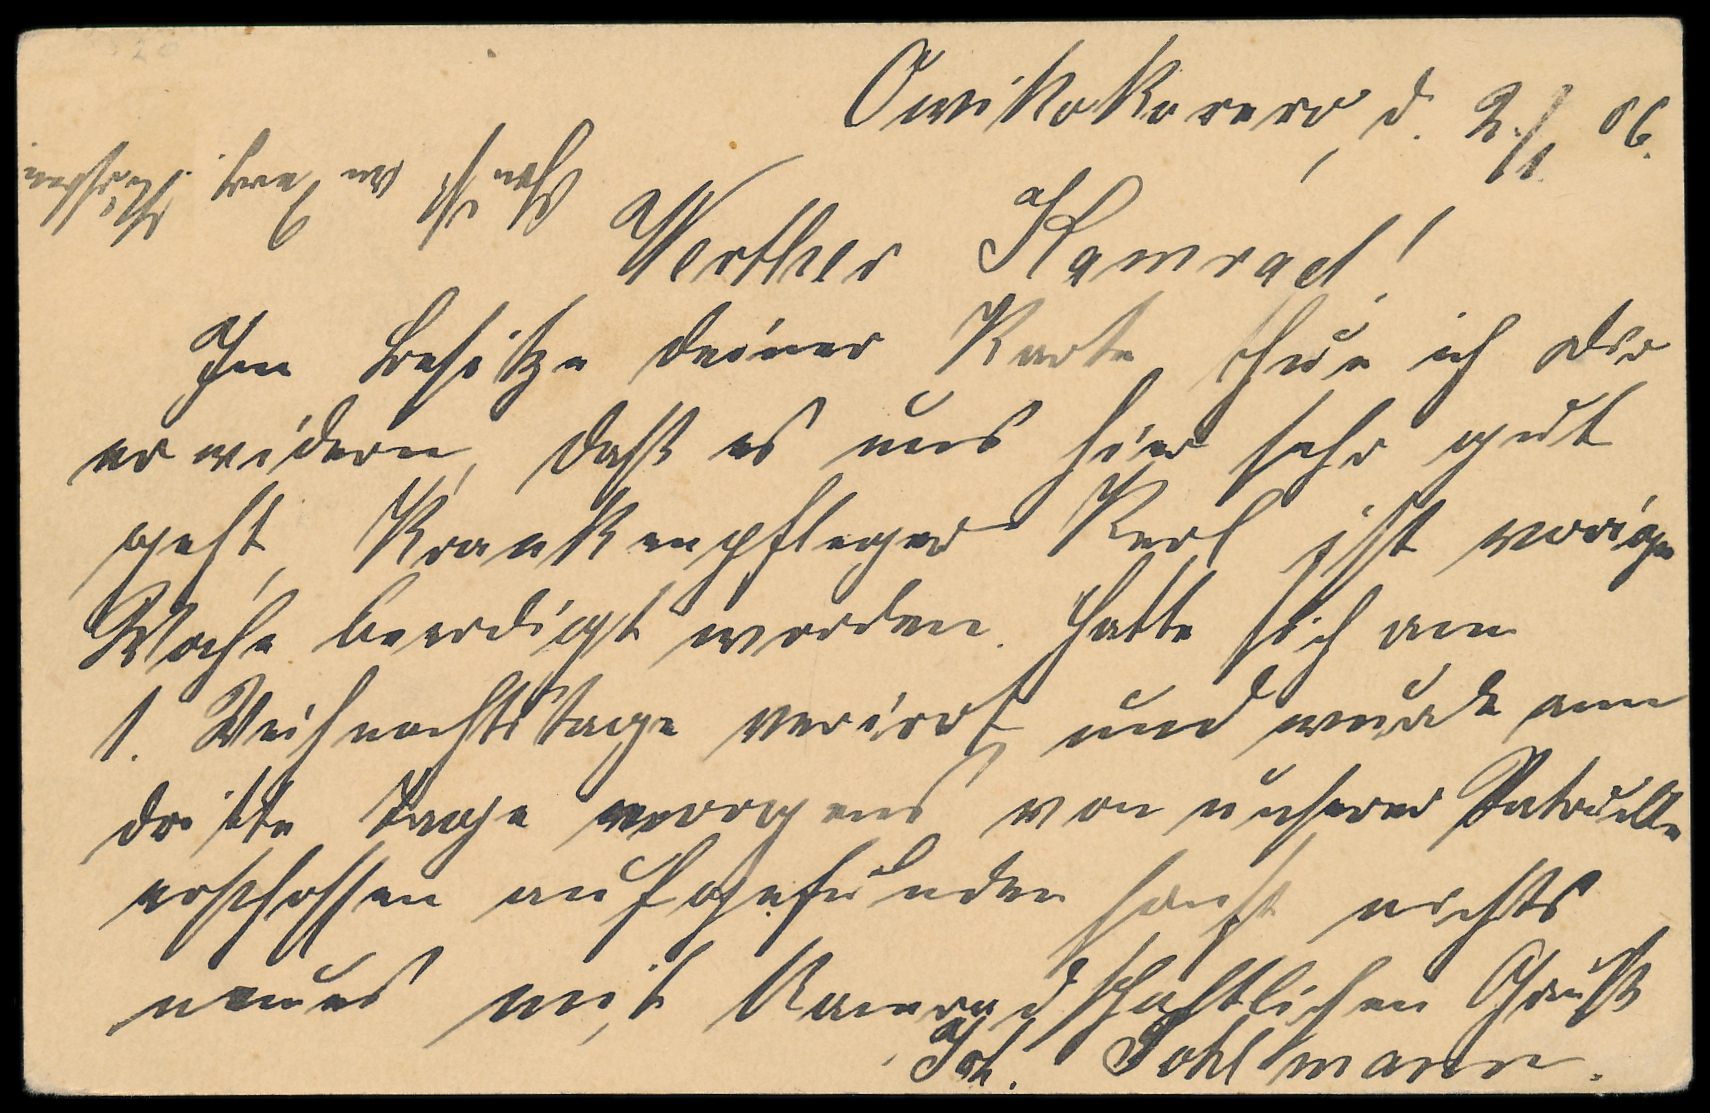 Owikokorero, d. 2./1. 06.
Werther Kamrad!
Im Besitze deiner Karte thue ich dir
erwidern, daß es uns hier sehr gut
geht, Krankenpfleger Kerl ist vorige
Woche beerdigt worden. Hatte sich am
1. Weihnachtstage verirrt, und wurde am
dritte Tage morgens von unserer Patrulle
erschossen aufgefunden sonst nichts
neues mit Kameradschaftlichen Gruß
Joh. Pohlmann.